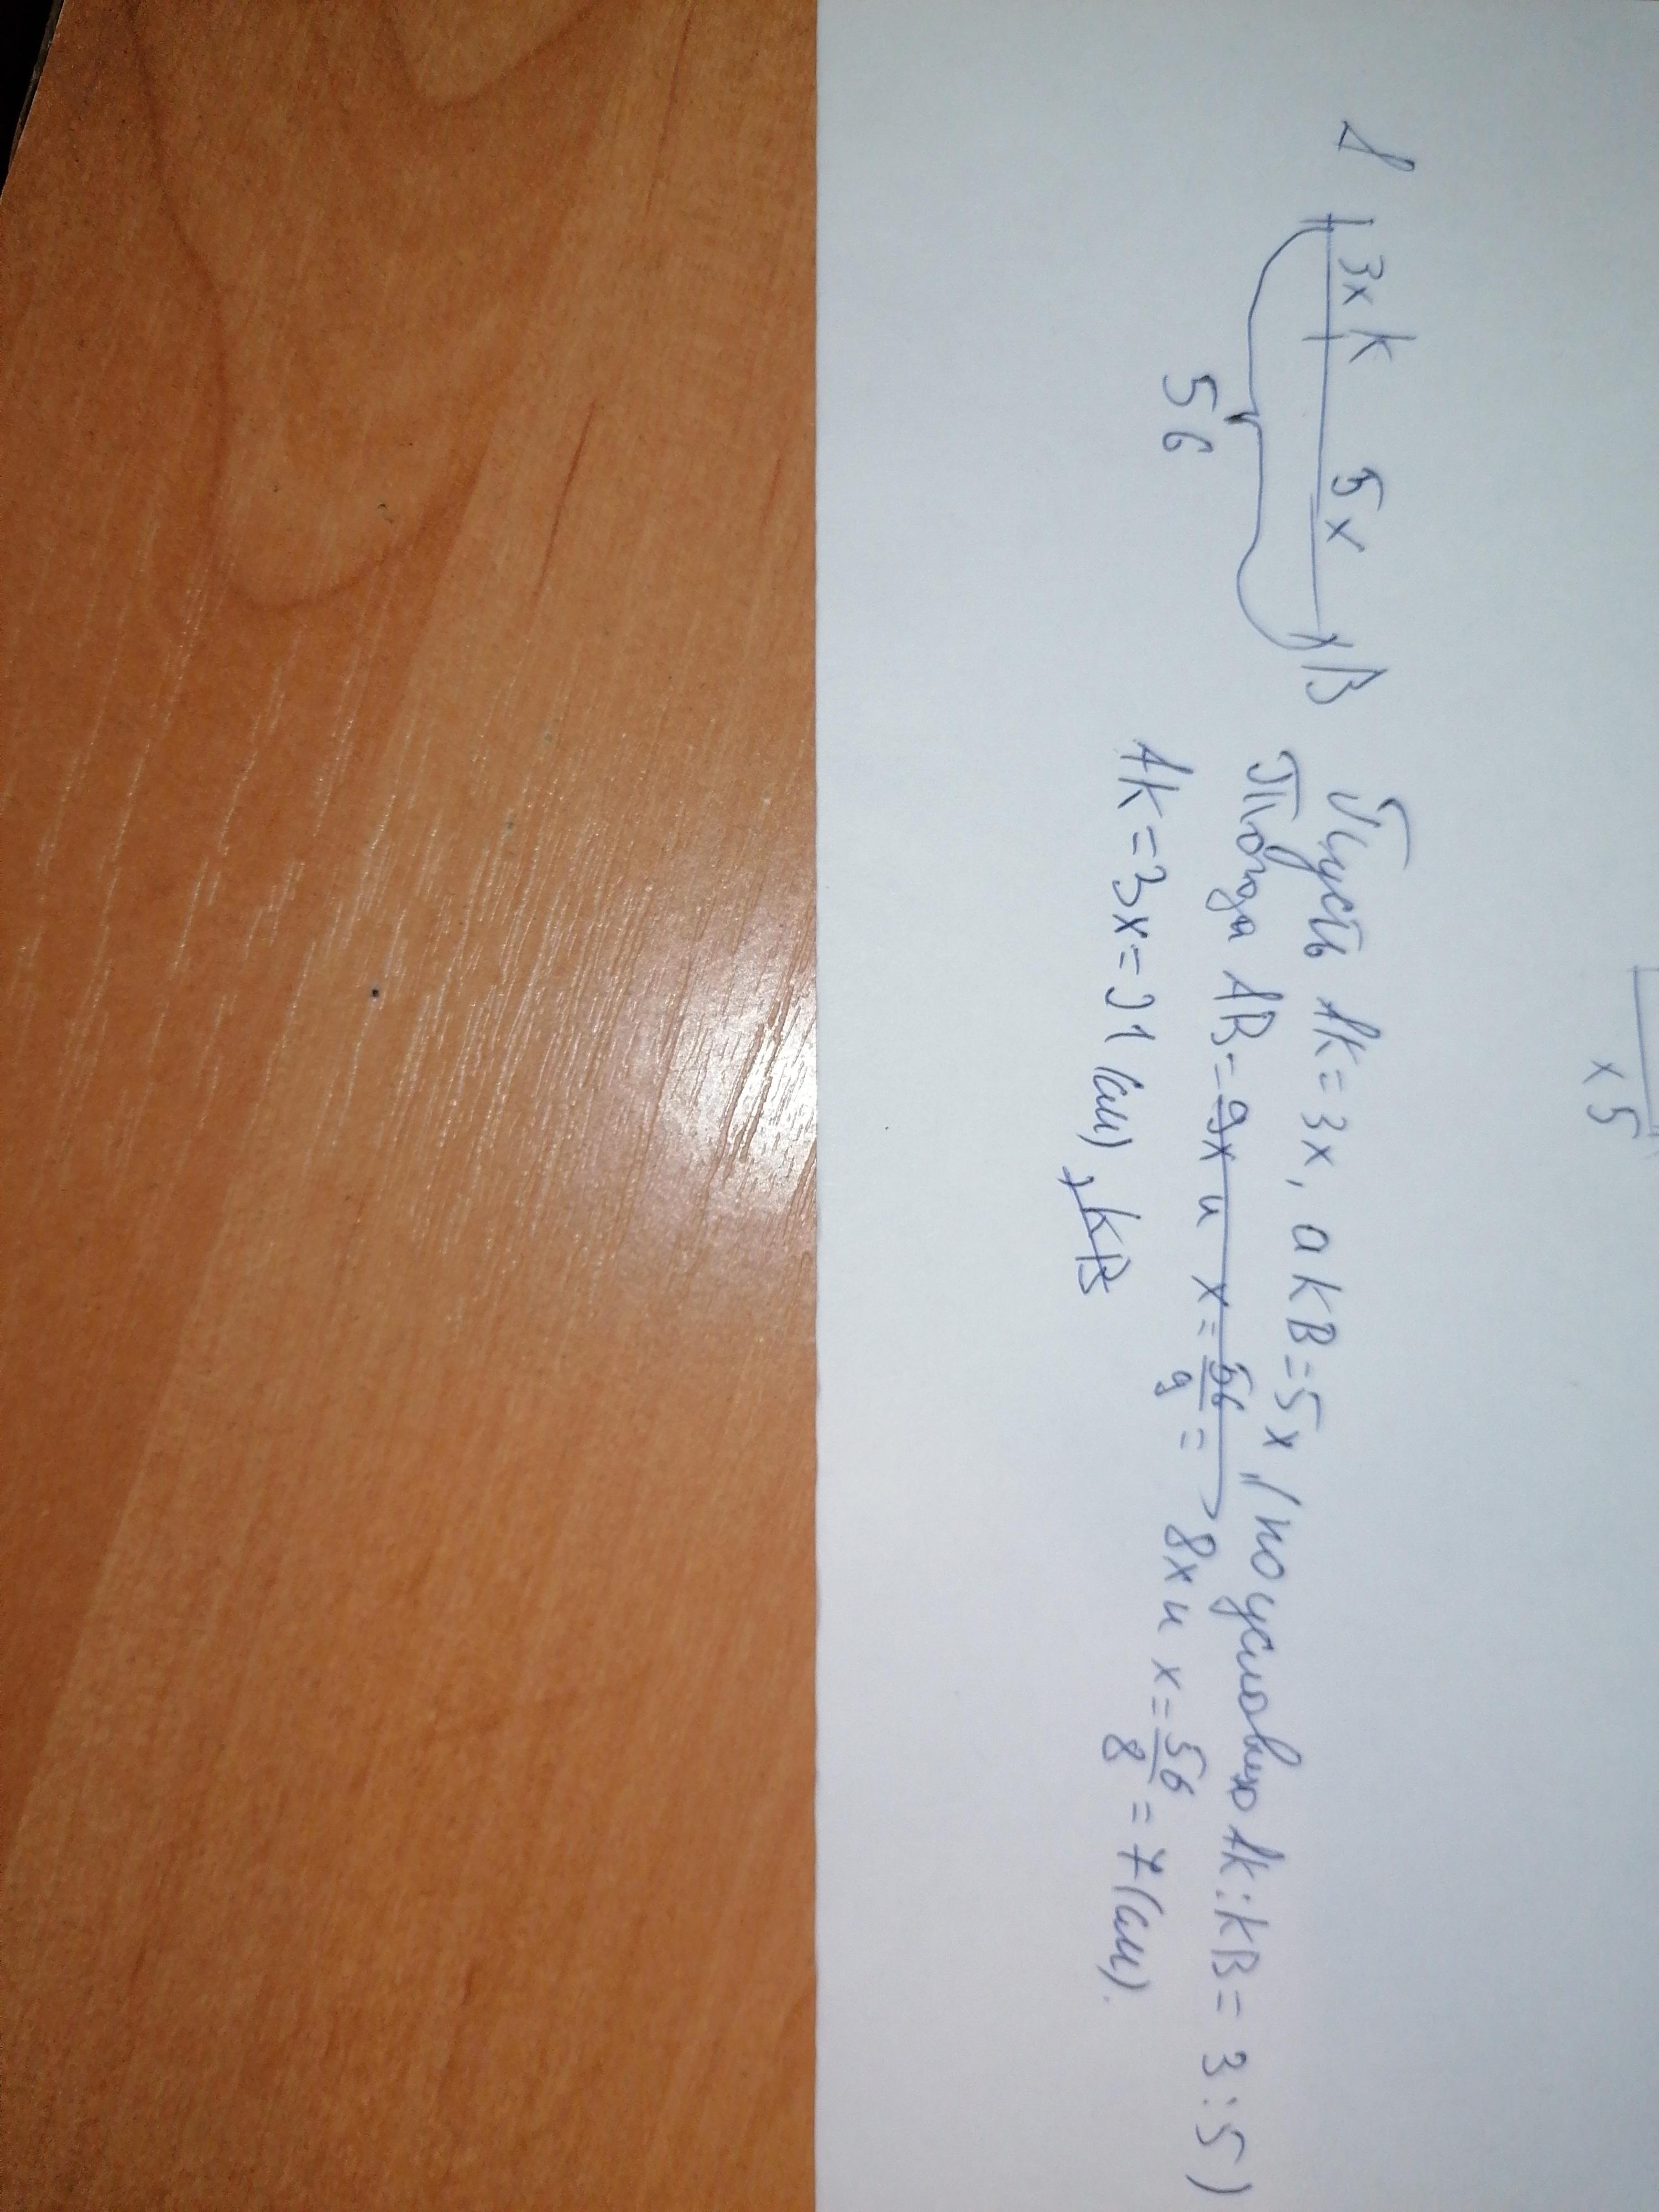 x 5
A 3x K 5x B
56
Пусть AK = 3x, а KB = 5x, (по условию AK : KB = 3 : 5)
Тогда AB = 9x и x = 56/9 = 8x и x = 56/8 = 7 (см).
AK = 3x = 21 (см), KB